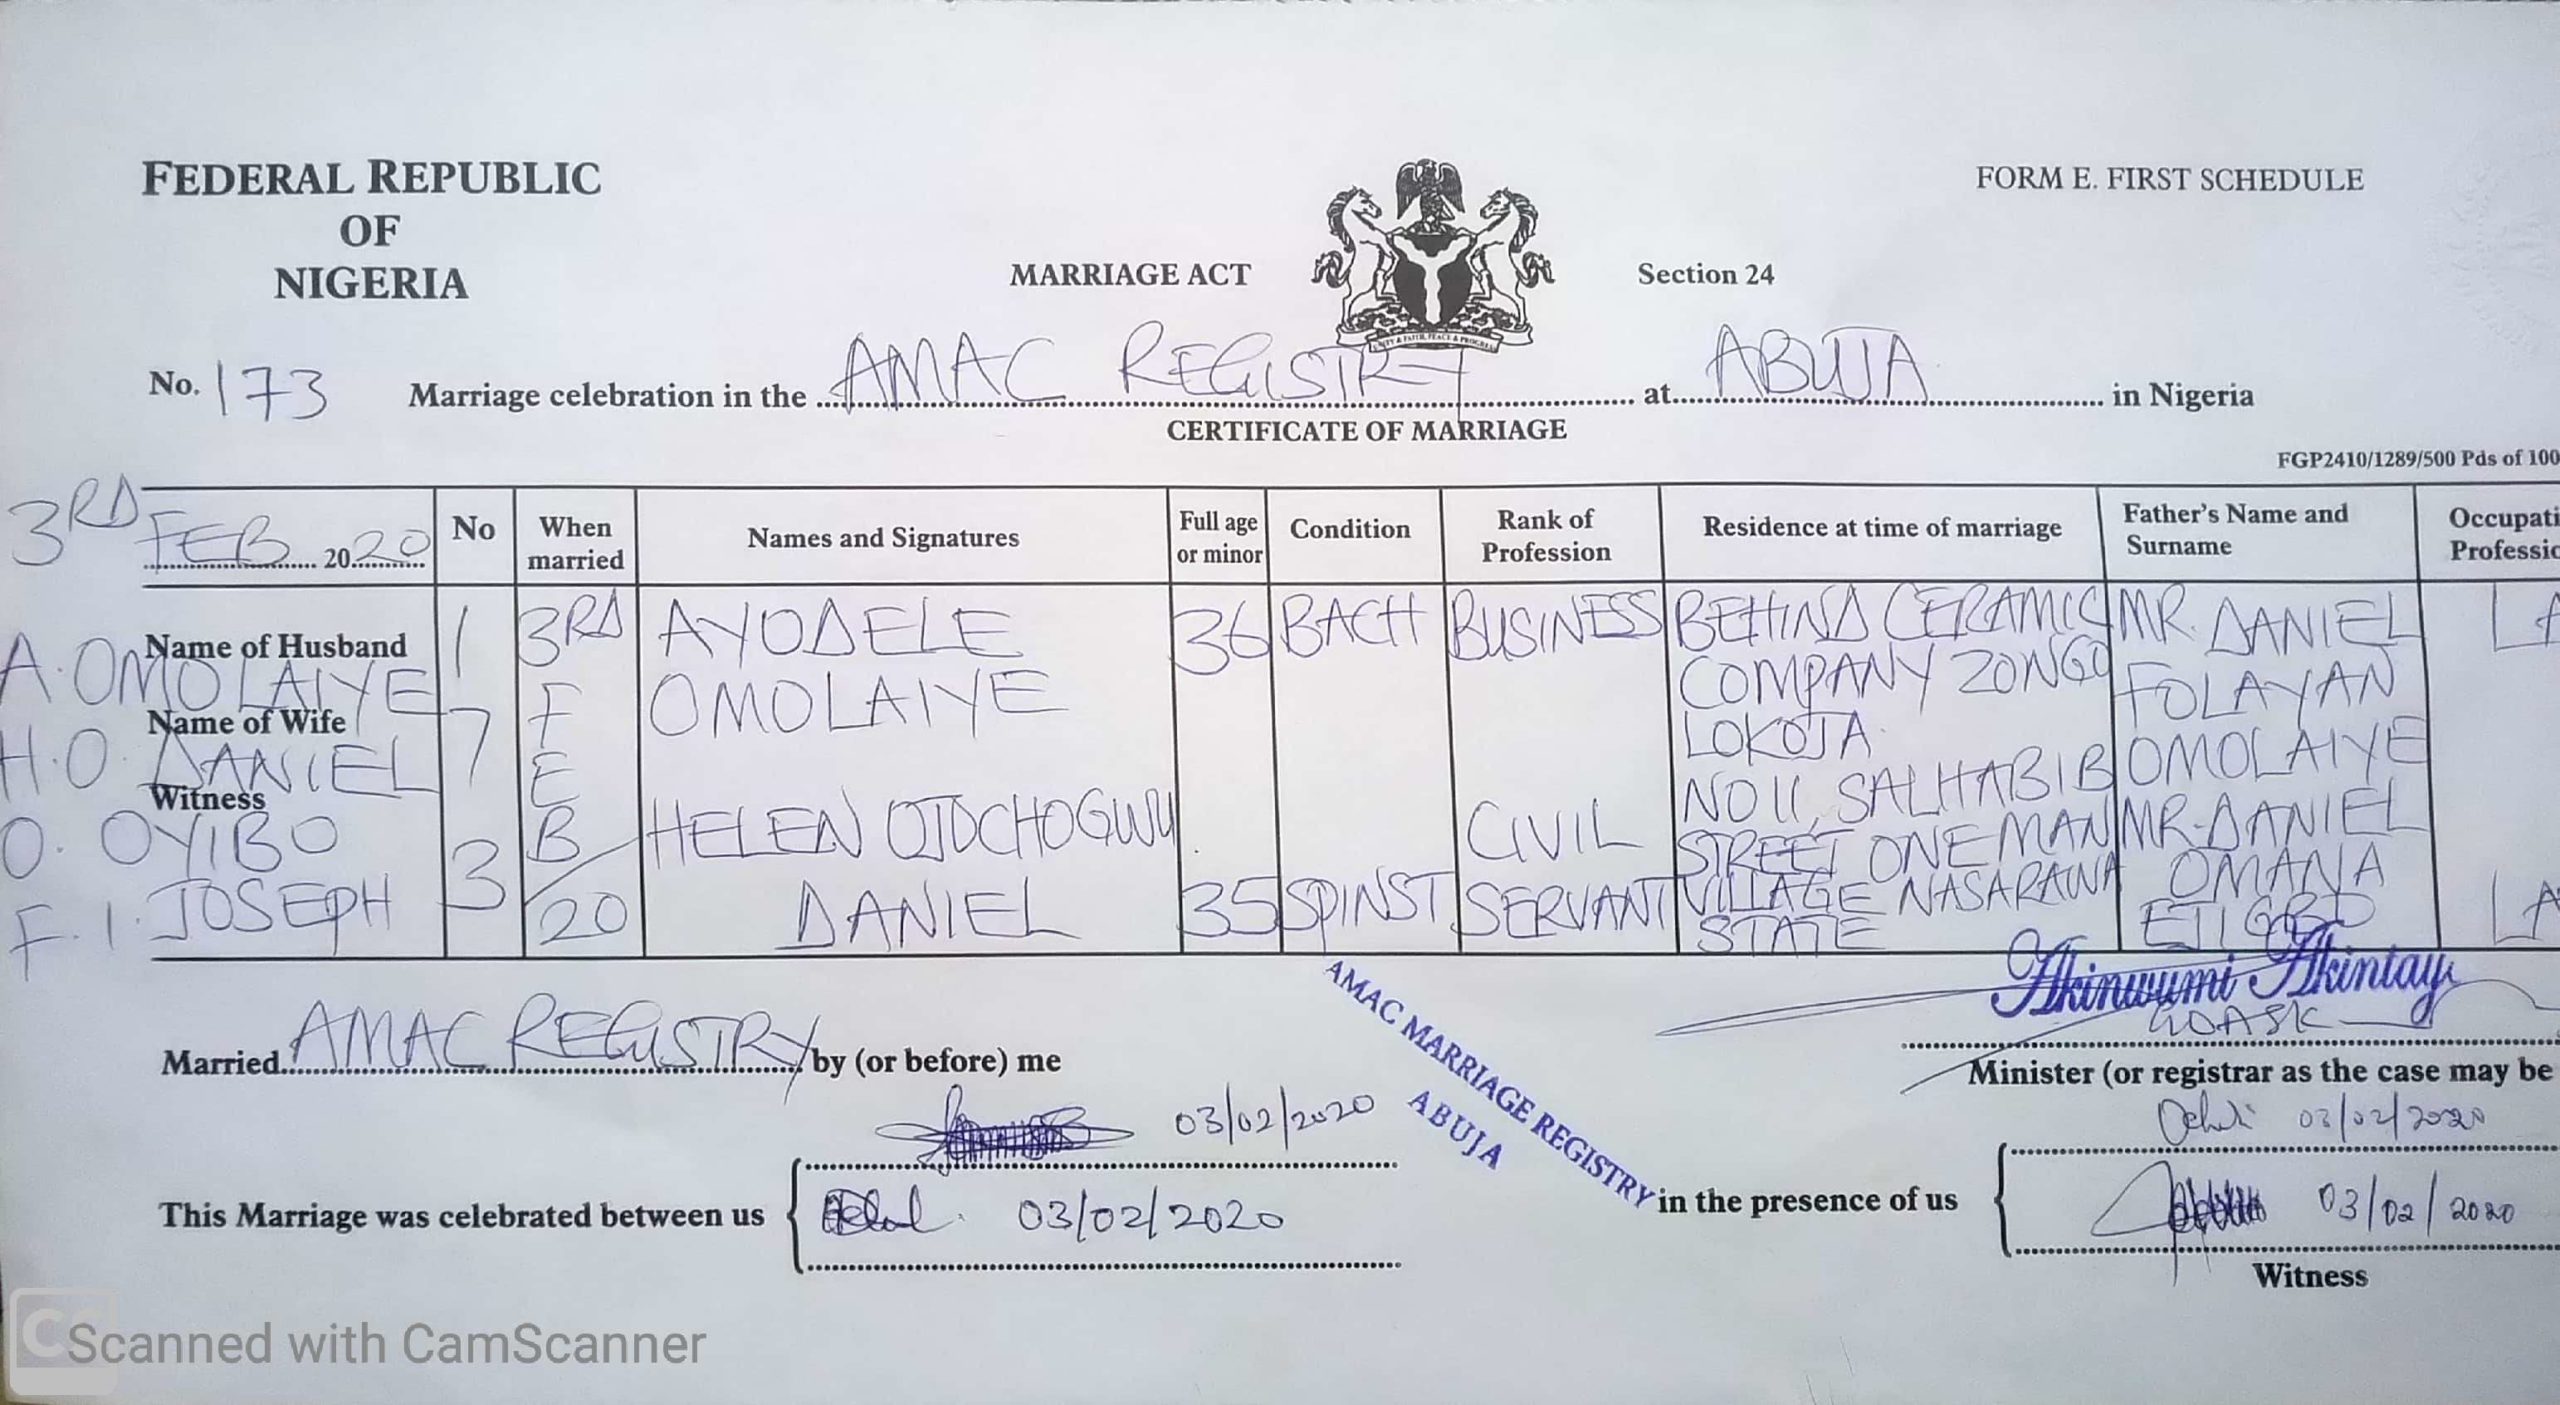 FEDERAL REPUBLIC
OF
NIGERIA
FORM E. FIRST SCHEDULE
MARRIAGE ACT
Section 24
UNITY & FAITH, PEACE & PROGRESS
No. 173 Marriage celebration in the AMAC REGISTRY at ABUJA in Nigeria
CERTIFICATE OF MARRIAGE
FGP2410/1289/500 Pds of 100
3RD
FEB 2020
No
When
married
Names and Signatures
Full age
or minor
Condition
Rank of
Profession
Residence at time of marriage
Father's Name and
Surname
Occupati
Professio
Name of Husband
A. OMOLAIYE
Name of Wife
H.O. DANIEL
Witness
O. OYIBO
F. I. JOSEPH
1
7
3
3RD
F
E
B
/20
AYODELE
OMOLAIYE
36
BACH
BUSINESS
BEHIND CERAMIC
COMPANY ZONGO
LOKOJA
MR. DANIEL
FOLAYAN
OMOLAIYE
LA
HELEN OJOCHOGWU
DANIEL
35
SPINST
CIVIL
SERVANT
NO 11, SALHABIB
STREET ONE MAN
VILLAGE NASARAWA
STATE
MR. DANIEL
OMANA
EJIGBO
LA
Akinwumi Akintay
Married AMAC REGISTRY by (or before) me
Minister (or registrar as the case may be
AMAC MARRIAGE REGISTRY
ABUJA
03/02/2020
03/02/2020
This Marriage was celebrated between us
03/02/2020
in the presence of us
03/02/2020
Witness
CS
Scanned with CamScanner